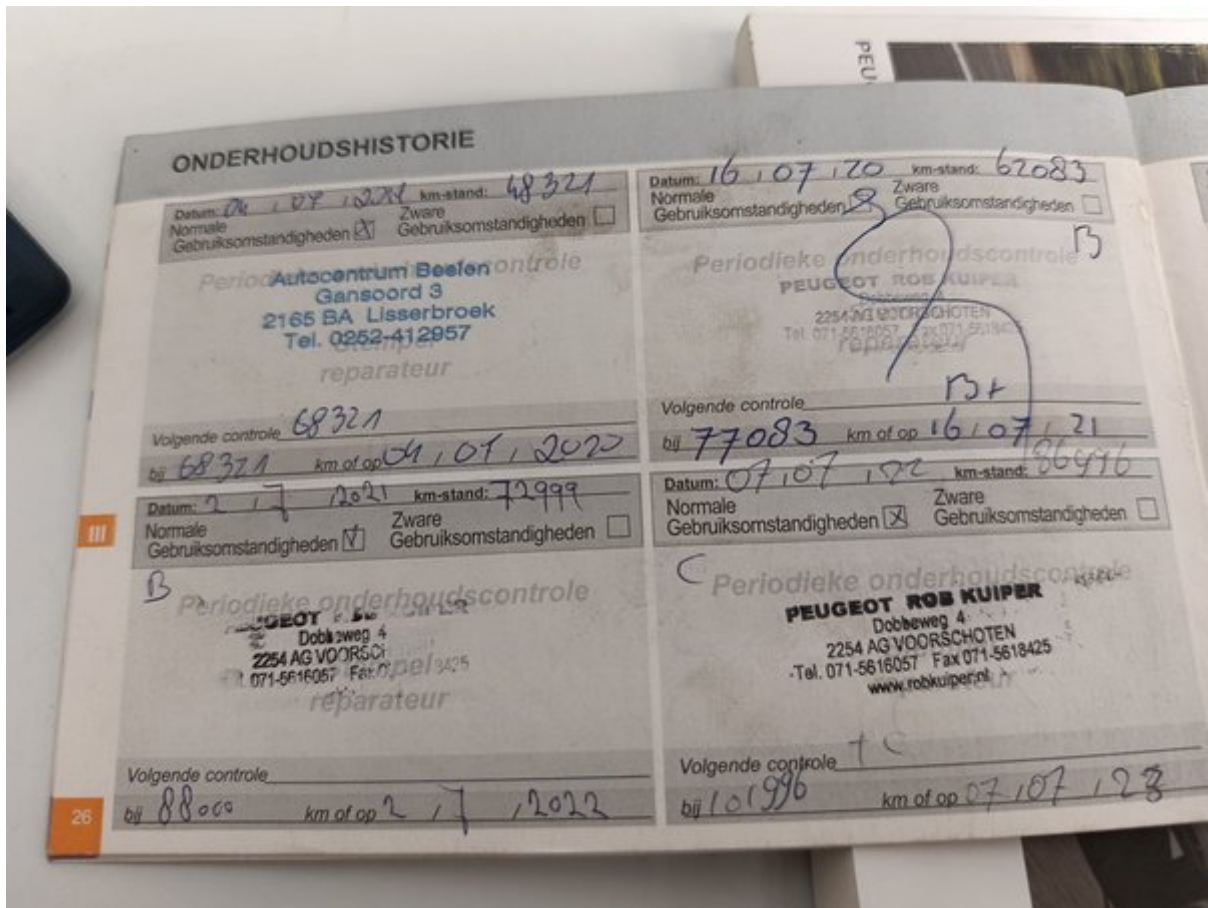 PEU
ONDERHOUDSHISTORIE
Datum: 04, 07, km-stand: 48321
Normale Gebruiksomstandigheden X Zware Gebruiksomstandigheden
Periodieke onderhoudscontrole
Autocentrum Beelen
Gansoord 3
2165 BA Lisserbroek
Tel. 0252-412957
Stempel
reparateur
Volgende controle 68321
bij 68321 km of op 04, 07, 2020
Datum: 16, 07, 20 km-stand: 62083
Normale Gebruiksomstandigheden Zware Gebruiksomstandigheden
B
Periodieke onderhoudscontrole
PEUGEOT ROB KUIPER
Dobbeweg 4
2254 AG VOORSCHOTEN
Tel. 071-5616057 Fax 071-5618425
reparateur
Volgende controle B+
bij 77083 km of op 16, 07, 21
Datum: 2, 7, 2021 km-stand: 72999
Normale Gebruiksomstandigheden Zware Gebruiksomstandigheden
B
Periodieke onderhoudscontrole
Dobbeweg 4
2254 AG VOORSC
071-5616057 Fax 8425
Stempel
reparateur
Volgende controle
bij 88000 km of op 2, 7, 2022
Datum: 07, 07, 22 km-stand: 86996
Normale Gebruiksomstandigheden X Zware Gebruiksomstandigheden
C
Periodieke onderhoudscontrole
PEUGEOT ROB KUIPER
Dobbeweg 4
2254 AG VOORSCHOTEN
Tel. 071-5616057 Fax 071-5618425
www.robkuiper.nl
Volgende controle + C
bij 101996 km of op 07, 07, 23
III
26